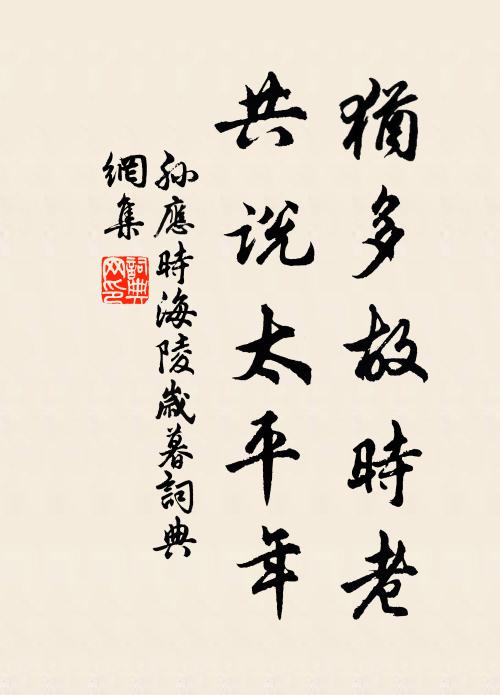 猶多故時老
共說太平年
孫應時海陵歲暮詞典
網集
詞典
网印